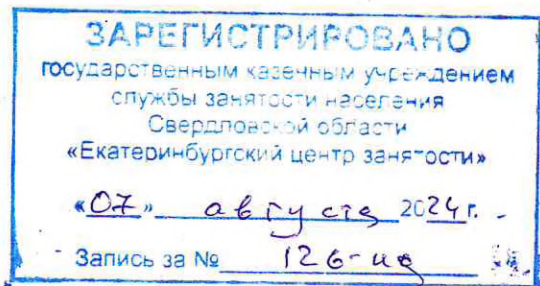 ЗАРЕГИСТРИРОВАНО
государственным казенным учреждением
службы занятости населения
Свердловской области
«Екатеринбургский центр занятости»
«07» августа 2024 г.
Запись за № 126-ид